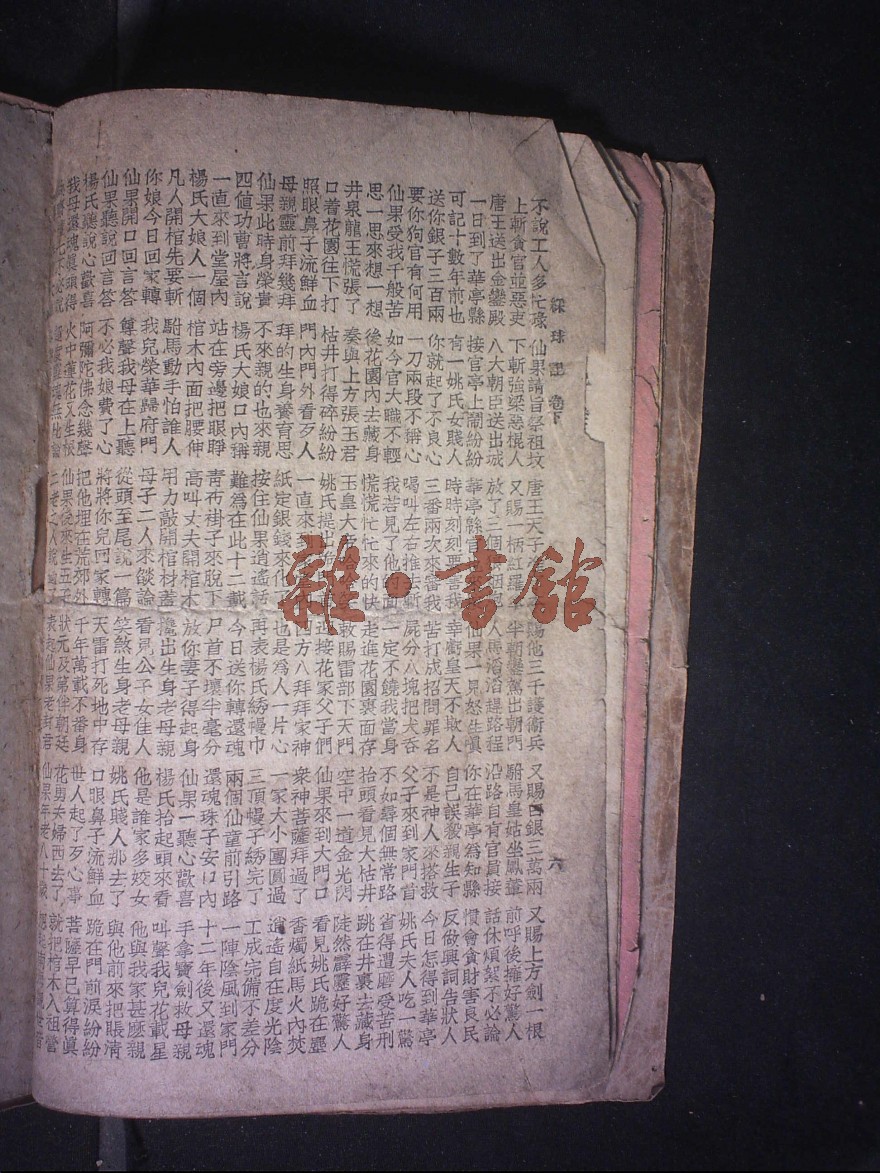 綵球記 卷下 六
不說工人多忙碌 仙果請旨祭祖坟 唐王天子 賜他三千護衛兵 又賜白銀三萬兩 又賜上方劍一根
上斬貪官並惡吏 下斬強梁惡棍人 又賜一柄紅羅 半朝鑾駕出朝門 駙馬皇姑坐鳳輦 前呼後擁好驚人
唐王送出金鑾殿 八大朝臣送出城 放了三個 人馬滔滔趕路程 沿路自有官員接 話休煩絮不必論
一日到了華亭縣 接官亭上鬧紛紛 華亭縣官 仙果一見怒生嗔 你在華亭爲知縣 慣會貪財害良民
可記十數年前也 有一姚氏女賤人 時時刻刻要 我 幸虧皇天不欺人 自己誤愛親生子 反做興詞告狀人
送你銀子三百兩 你就起了不良心 三番兩次來審我 苦打成招問罪名 不是神人來搭救 今日怎得到華亭
要你狗官有何用 一刀兩段不稱心 喝叫左右推去斬 屍分八塊把犬吞 父子來到家門首 姚氏夫人吃一驚
仙果愛我千般苦 如今官大職不輕 我若見了他的面 一定不饒我當身 不如尋個無常路 省得遭磨受苦刑
思一思來想一想 後花園內去藏身 慌慌忙忙來的快 走進花園裏面存 抬頭看見大枯井 跳在井裏去藏身
井泉龍王慌張了 奏與上方張玉君 玉皇大帝 敕賜雷部下天門 空中一道金光閃 陡然霹靂好驚人
口着花園往下打 枯井打得碎紛紛 姚氏提出 迎接花家父子們 仙果來到大門口 看見姚氏跪在塵
照眼鼻子流鮮血 門內門外看歹人 一直來到 四方八拜拜家神 衆神菩薩拜過了 香燭紙馬火內焚
母親靈前拜幾拜 拜的生身養育恩 紙定銀錢來化 也是爲人一片心 一家大小團圓過 逍遙自在度光陰
仙果此時身榮貴 不來親的也來親 按住仙果逍遙話 再表楊氏綉幔巾 三頂幔子綉完了 工成完備不差分
四値功曹將言說 楊氏大娘口內稱 難爲在此十二載 今日送你轉還魂 兩個仙童前引路 一陣陰風到家門
一直來到堂屋內 站在旁邊把眼睜 青布褂子來脫下 尸首不壞半毫分 還魂珠子安口內 十二年後又還魂
楊氏大娘人一個 棺木內面把腰伸 高叫丈夫開棺木 放你妻子得起身 仙果一聽心歡喜 手拿寶劍救母親
凡人開棺先要斬 駙馬動手怕誰人 用力敲開棺材蓋 攙出生身老母親 楊氏抬起頭來看 叫聲我兒花載星
你娘今日回家轉 我兒榮華歸府門 母子二人來談論 看見公子女佳人 他是誰家多姣女 他與我家甚麽親
仙果開口回言答 尊聲我母在上聽 從頭至尾說一篇 笑煞生身老母親 姚氏賤人那去了 與他前來把賬清
仙果聽說回言答 不必我娘費了心 將將你兒回家轉 天雷打死地中存 口眼鼻子流鮮血 跪在門前淚紛紛
楊氏聽說心歡喜 阿彌陀佛念幾聲 把他埋在荒郊外 千年萬載不番身 世人起了歹心事 菩薩早已算得眞
我母還魂眞頭得 火中蓮花又生根 仙果後來生五子 狀元及第伴朝廷 花男夫婦西去了 就把棺木入祖塋
仙果年老八十歲
雜·書館